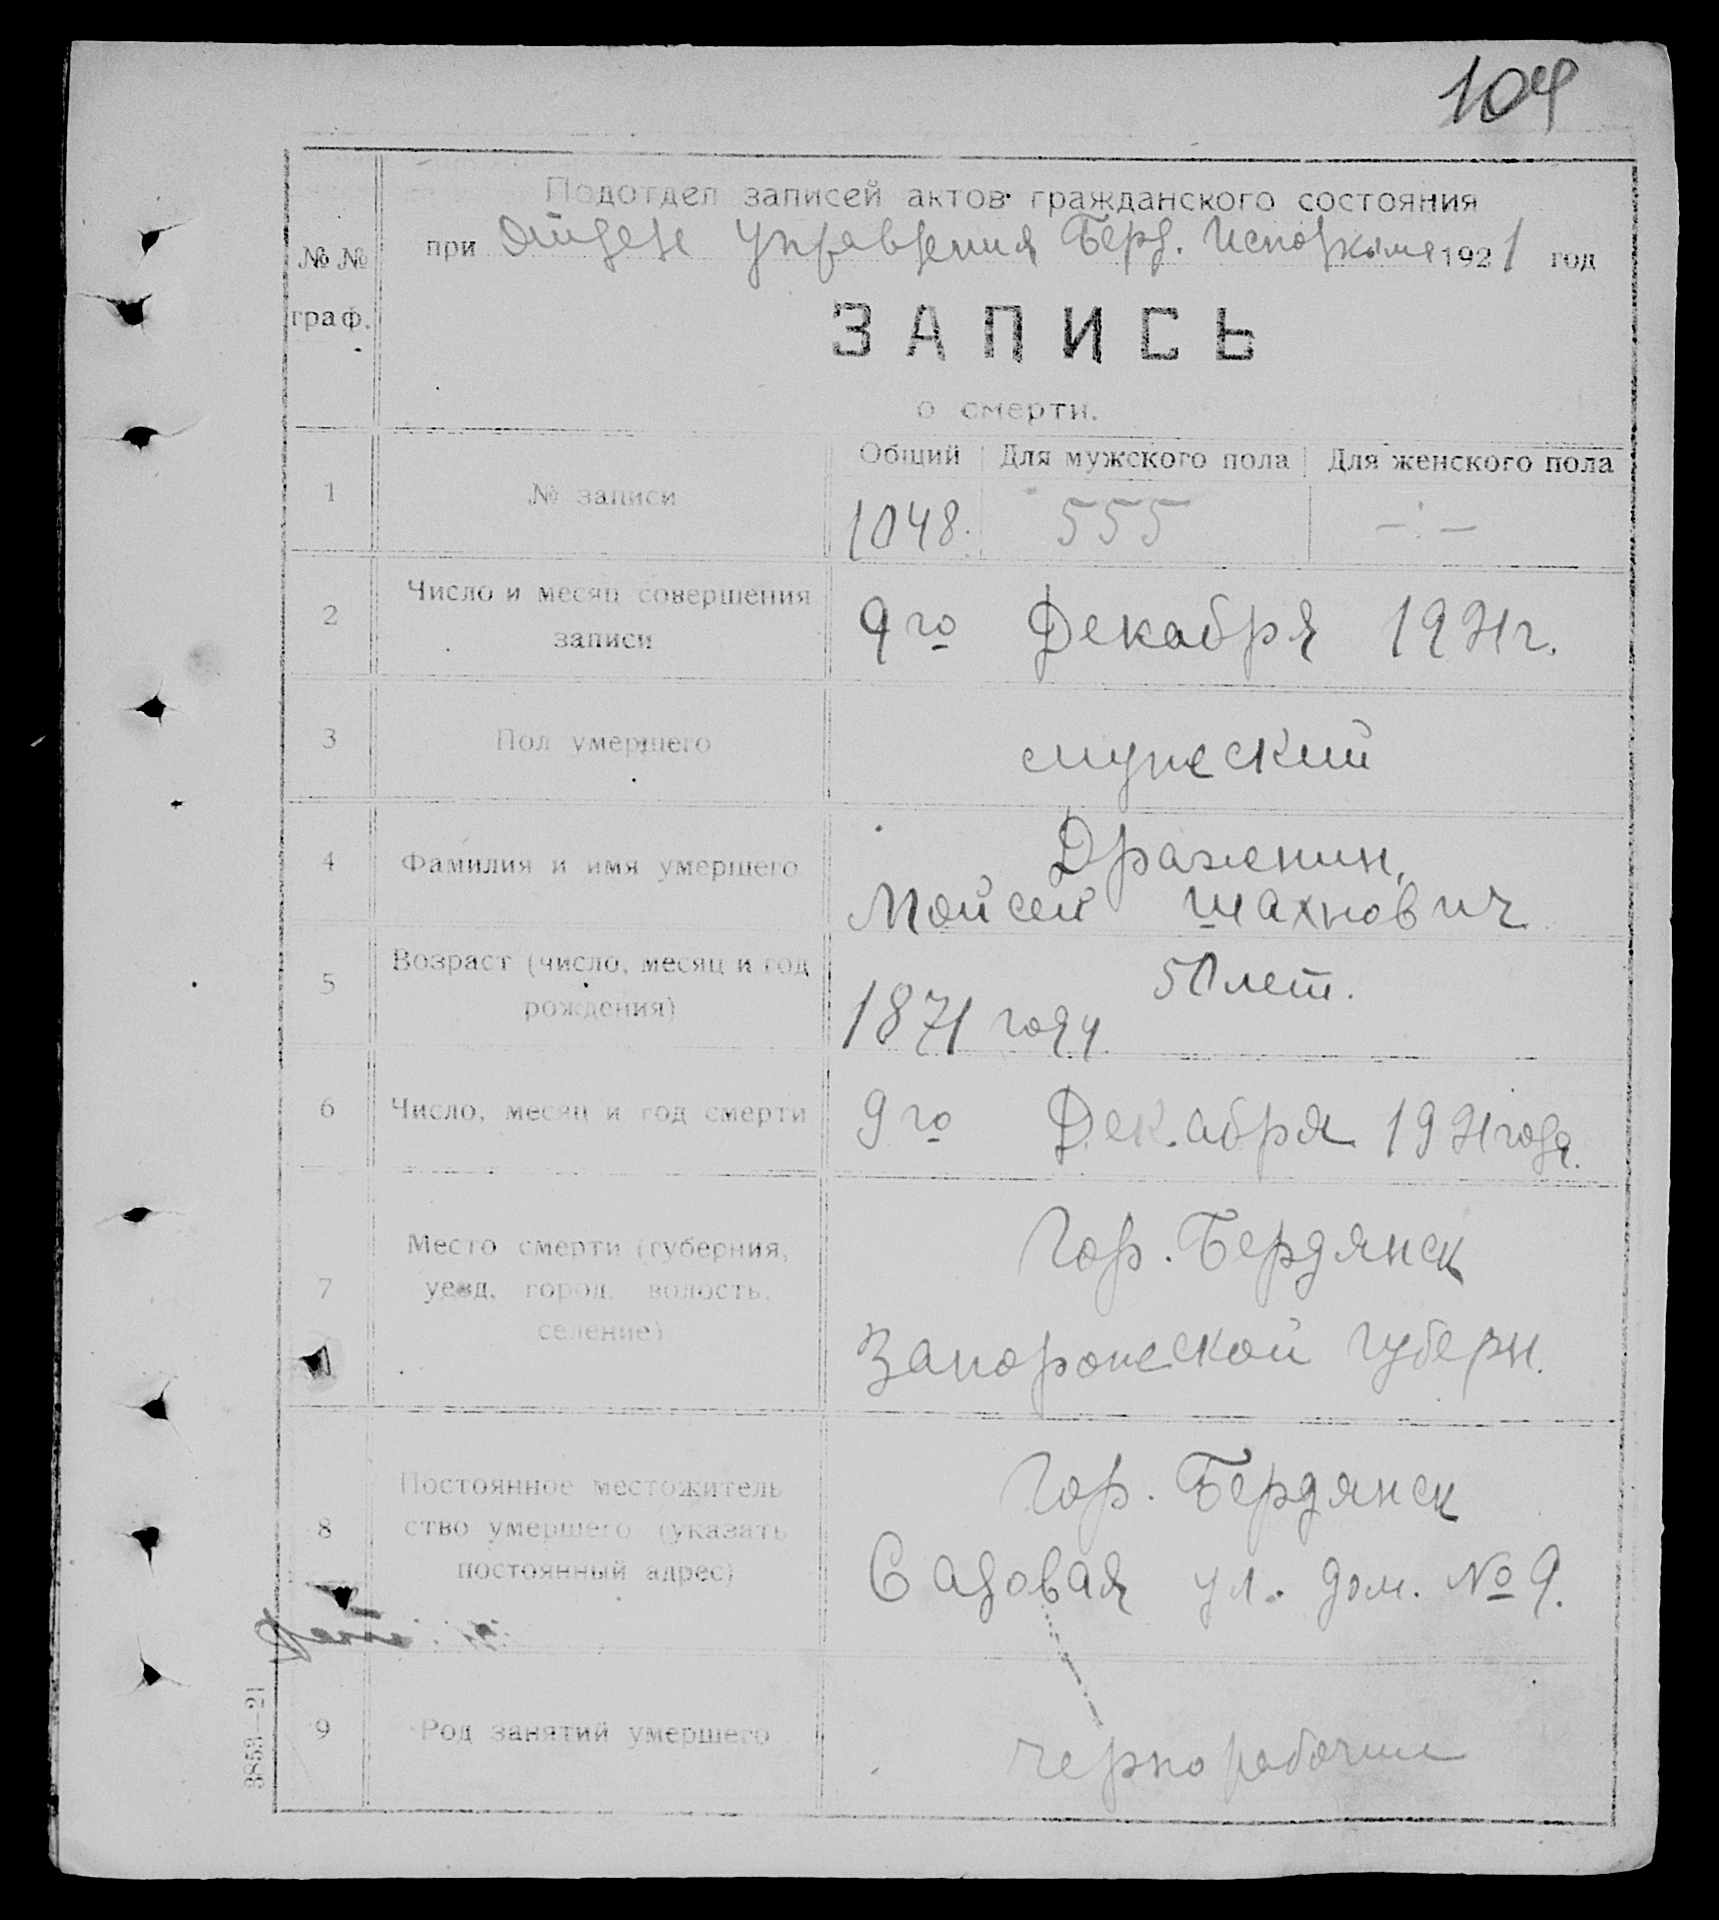 104
Подотдел записей актов гражданского состояния
при Отделе Управления Берд. Исполкома 1921 год
№ №
граф.
ЗАПИСЬ
о смерти.
Общий Для мужского пола Для женского пола
1 № записи 1048. 555 —:—
2 Число и месяц совершения
записи
9го Декабря 1921г.
3 Пол умершего мужеский
4 Фамилия и имя умершего Драженин,
Мойсей Шахнович
5 Возраст (число, месяц и год
рождения)
50 лет.
1871 году
6 Число, месяц и год смерти 9го Декабря 1921 года.
7 Место смерти (губерния,
уезд, город, волость,
селение)
Гор. Бердянск
Запорожеской губерн.
8 Постоянное местожитель
ство умершего (указать
постоянный адрес)
Гор. Бердянск
Садовая ул. дом. № 9.
9 Род занятий умершего чернорабочий
3853—21